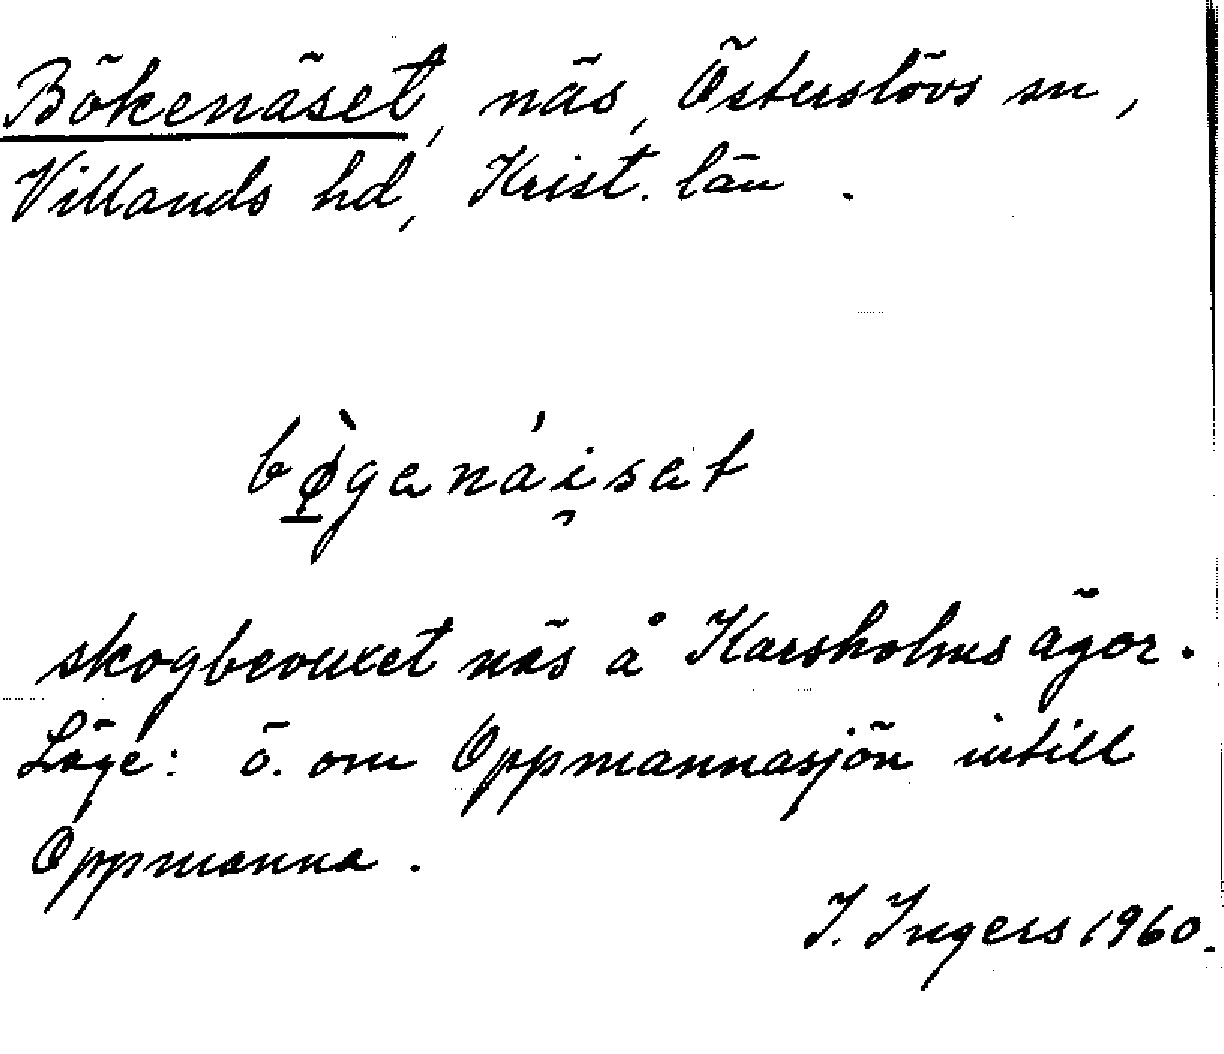 Bökenäset, näs, Österslövs sn,
Villands hd, Krist. län.
bø̱̀ganái̯sat
skogbevuxet näs å Karsholms ägor.
Läge: ö. om Oppmannasjön intill
Oppmanna.
I. Ingers 1960.